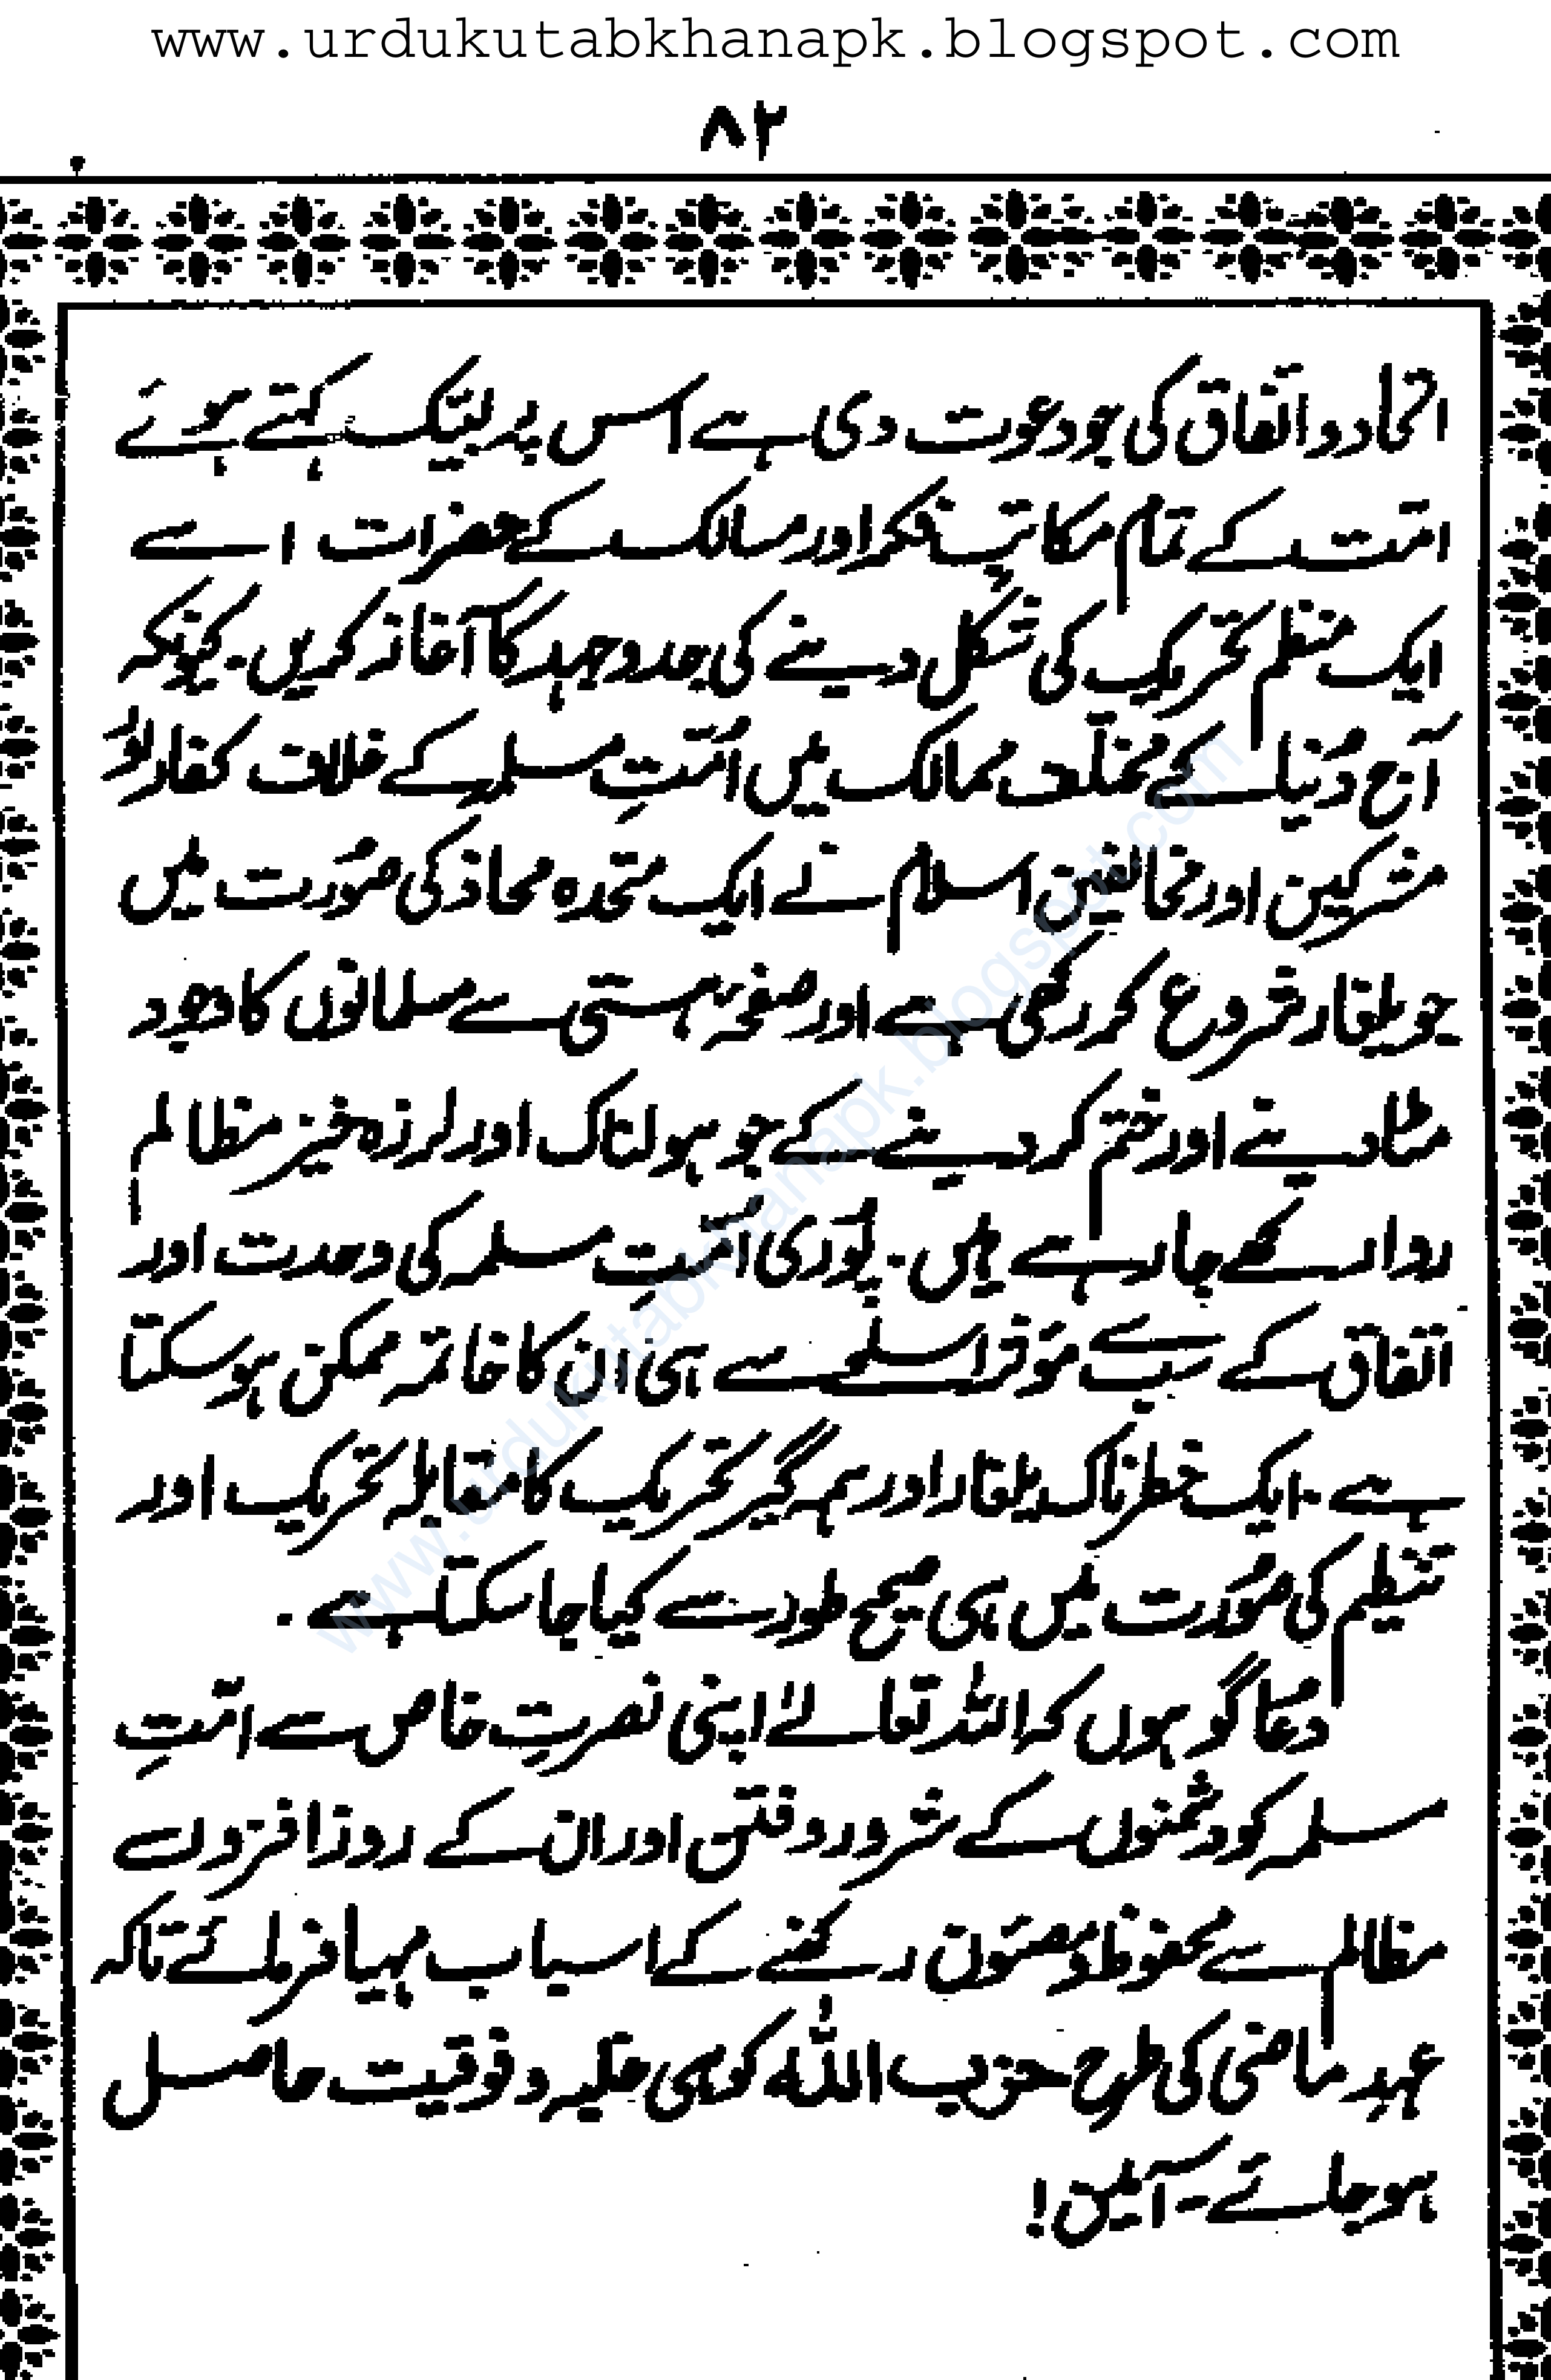 www.urdukutabkhanapk.blogspot.com
۸۲
اتحاد و اتفاق کی جو دعوت دی ہے اس پر لبیک کہتے ہوئے
امت کے تمام مکاتبِ فکر اور مسالک کے حضرات اسے
ایک منظم تحریک کی شکل دینے کی جدوجہد کا آغاز کریں۔ کیونکہ
آج دُنیا کے مختلف ممالک میں اُمّتِ مسلمہ کے خلاف کفار اور
مشرکین اور مخالفین اسلام نے ایک متحدہ محاذ کی صُورت میں
جو یلغار شروع کر رکھی ہے اور صفحۂ ہستی سے مسلمانوں کا وجود
مٹا دینے اور ختم کر دینے کے جو ہولناک اور لرزہ خیز مظالم
روا رکھے جا رہے ہیں۔ پُوری اُمّتِ مسلمہ کی وحدت اور
اتفاق کے سب سے مؤثر اسلحے سے ہی ان کا خاتمہ ممکن ہو سکتا
ہے۔ ایک خطرناک یلغار اور ہمہ گیر تحریک کا مقابلہ تحریک اور
تنظیم کی صُورت میں ہی صحیح طور سے کیا جا سکتا ہے۔
دعا گو ہوں کہ اللہ تعالےٰ اپنی نصرتِ خاص سے امّتِ
مسلمہ کو دشمنوں کے شرور و فتن اور ان کے روز افزوں
مظالم سے محفوظ و مصئون رکھنے کے اسباب مہیا فرمائے تاکہ
عہدِ ماضی کی طرح حزب اللہ کو ہی غلبہ و فوقیت حاصل
ہو جائے۔ آمین!
www.urdukutabkhanapk.blogspot.com